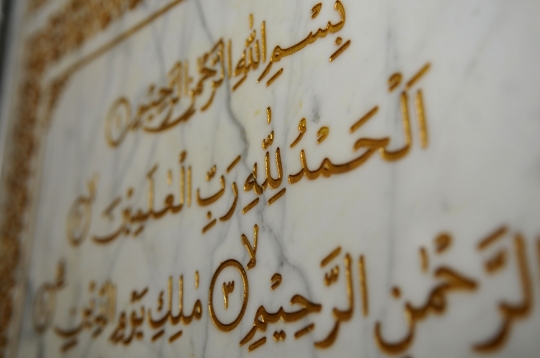 بِسْمِ اللهِ الرَّحْمٰنِ الرَّحِيْمِ ﴿١﴾
اَلْحَمْدُ لِلّٰهِ رَبِّ الْعٰلَمِيْنَ ۙ
الرَّحْمٰنِ الرَّحِيْمِ ۙ﴿٣﴾ مٰلِكِ يَوْمِ الدِّيْنِ